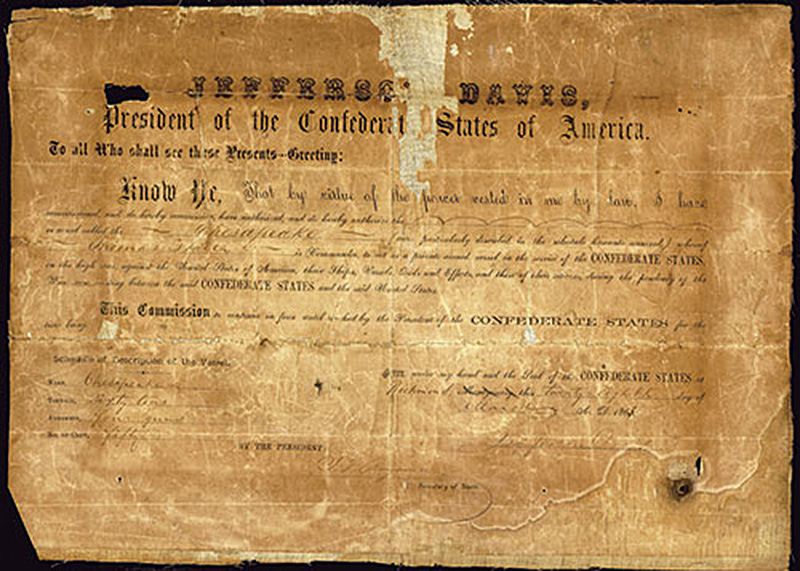 JEFFERSON DAVIS,
President of the Confederate States of America.
To all Who shall see these Presents—Greeting:
Know Ye, That by virtue of the power vested in me by law, I have
commissioned, and do hereby commission, have authorized, and do hereby authorize the
or vessel called the Chesapeake (more particularly described in the schedule hereunto annexed,) whereof
Thomas is Commander, to act as a private armed vessel in the service of the CONFEDERATE STATES,
on the high seas, against the United States of America, their Ships, Vessels, Goods and Effects, and those of their citizens, during the pendency of the
War now existing between the said CONFEDERATE STATES and the said United States.
This Commission to remain in force until revoked by the President of the CONFEDERATE STATES for the
time being.
Schedule of Description of the Vessel.
Name, Chesapeake
Tonnage, Sixty One
Armament, Four guns
No. of Crew, Fifty
under my hand and the Seal of the CONFEDERATE STATES at
Richmond this day of
A. D. 186
Jefferson Davis
BY THE PRESIDENT:
Secretary of State.